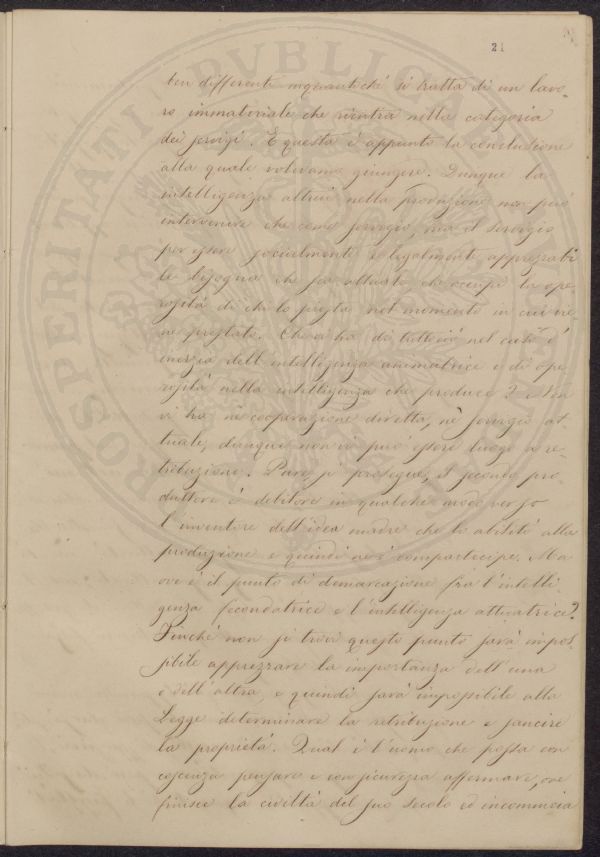 21
ben differente inquantoché si tratta di un lavo-
ro immateriale che rientra nella categoria
dei servigi. E questa è appunto la conclusione
alla quale volevamo giungere. Dunque la
intelligenza altrui nella produzione non può
intervenire che come servigio, ma il servigio
per essere socialmente e legalmente apprezzabi
le bisogna che sia attuato, che occupi la ope
rosità di chi lo presta nel momento in cui vie
ne prestato. Che vi ha di tutto ciò nel caso d'
inerzia dell'intelligenza animatrice e di ope
rosità nella intelligenza che produce? Non
vi ha nè cooperazione diretta, nè servigio at
tuale, dunque non vi può essere luogo a re
tribuzione. Pure, si prosegue, il secondo pro
duttore è debitore in qualche modo verso
l'inventore dell'idea madre che lo abilitò alla
produzione e quindi ne è compartecipe. Ma
ov'è il punto di demarcazione fra l'intelli
genza fecondatrice e l'intelligenza attuatrice?
Finché non si trovi questo punto sarà impos-
sibile apprezzare la importanza dell'una
e dell'altra, e quindi sarà impossibile alla
Legge determinare la retribuzione e sancire
la proprietà. Qual è l'uomo che possa con
coscienza pensare e con sicurezza affermare, ove
finisce la civiltà del suo secolo ed incomincia
PROSPERITATI PVBLICAE